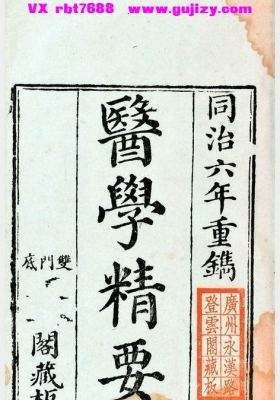 VX rbt7688 www.gujizy.com
同治六年重鐫
醫學精要
雙門底
閣藏板
廣州永漢路
登雲閣藏板